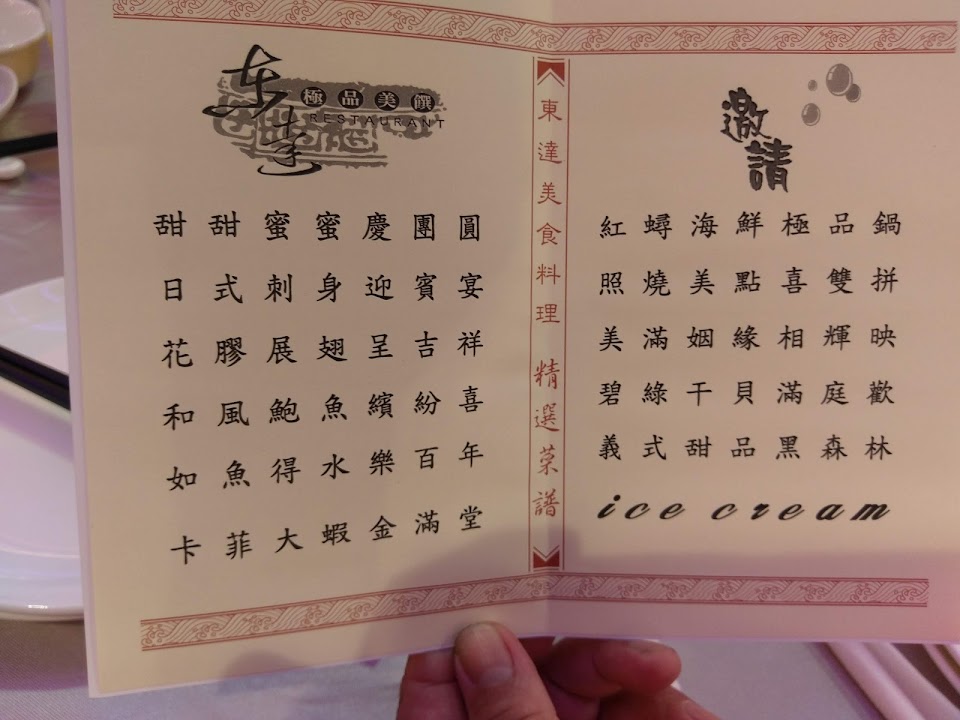 东达
極品美饌
RESTAURANT
甜甜蜜蜜慶團圓
日式刺身迎賓宴
花膠展翅呈吉祥
和風鮑魚繽紛喜
如魚得水樂百年
卡菲大蝦金滿堂
東達美食料理 精選菜譜
邀請
紅蟳海鮮極品鍋
照燒美點喜雙拼
美滿姻緣相輝映
碧綠干貝滿庭歡
義式甜品黑森林
ice cream